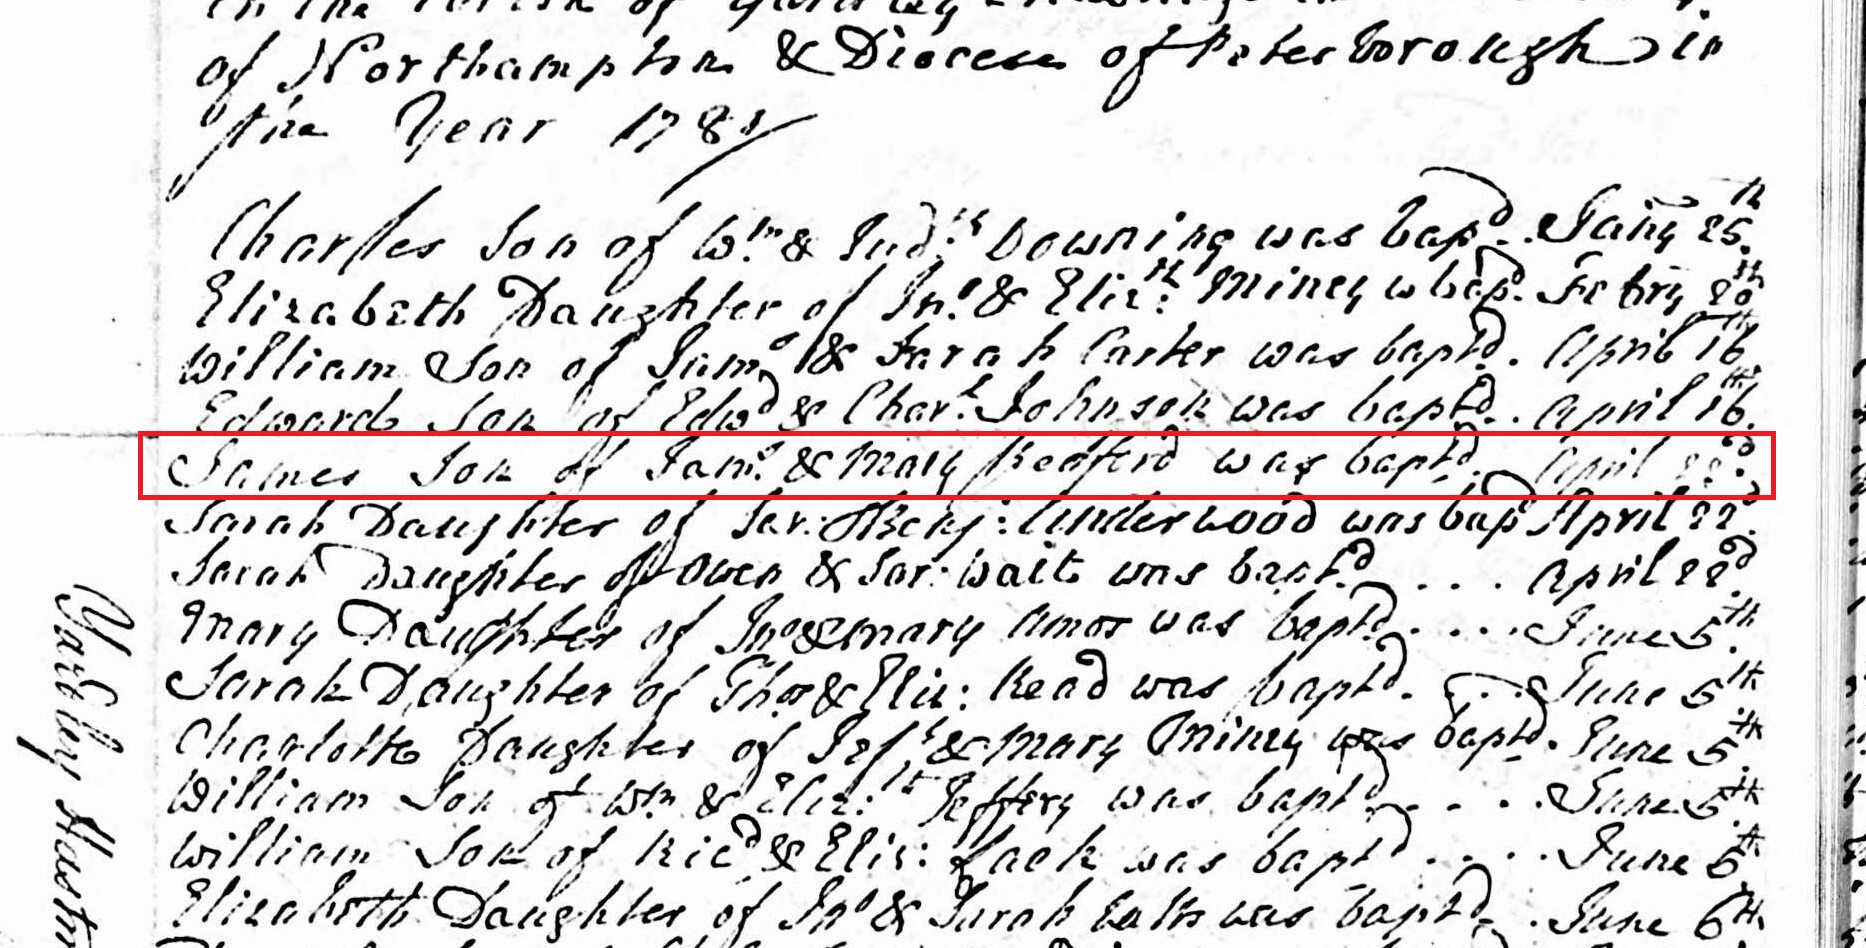 in the Parish of Yardley Hastings in
of Northampton & Diocese of Peterborough in
the Year 1781
Charles Son of Wm & Jud:th Downing was bapd. Janry 25th
Elizabeth Daughter of Jno. & Eliz:th Miney w bap. Febry 20th
William Son of Jams & Sarah Carter was baptd. April 16th
Edward Son of Edwd & Char:t Johnson was baptd. April 16th
James Son of Jams. & Mary Redford was baptd. April 22d
Sarah Daughter of Sar: & Benj: Underwood was bapd April 22d
Sarah Daughter of Owen & Sar: Wait was baptd . . . April 22d
Mary Daughter of Jno & Mary Amos was baptd. . . . June 5th
Sarah Daughter of Thos & Eliz: Read was baptd. . . . June 5th
Charlotte Daughter of Jef & Mary Miney was baptd. June 5th
William Son of Wm & Eliz:th Jeffery was baptd. . . . June 5th
William Son of Ricd & Eliz: Lack was baptd . . . June 5th
Elizabeth Daughter of Jno & Sarah was baptd . . June 6th
Yardley Hastin